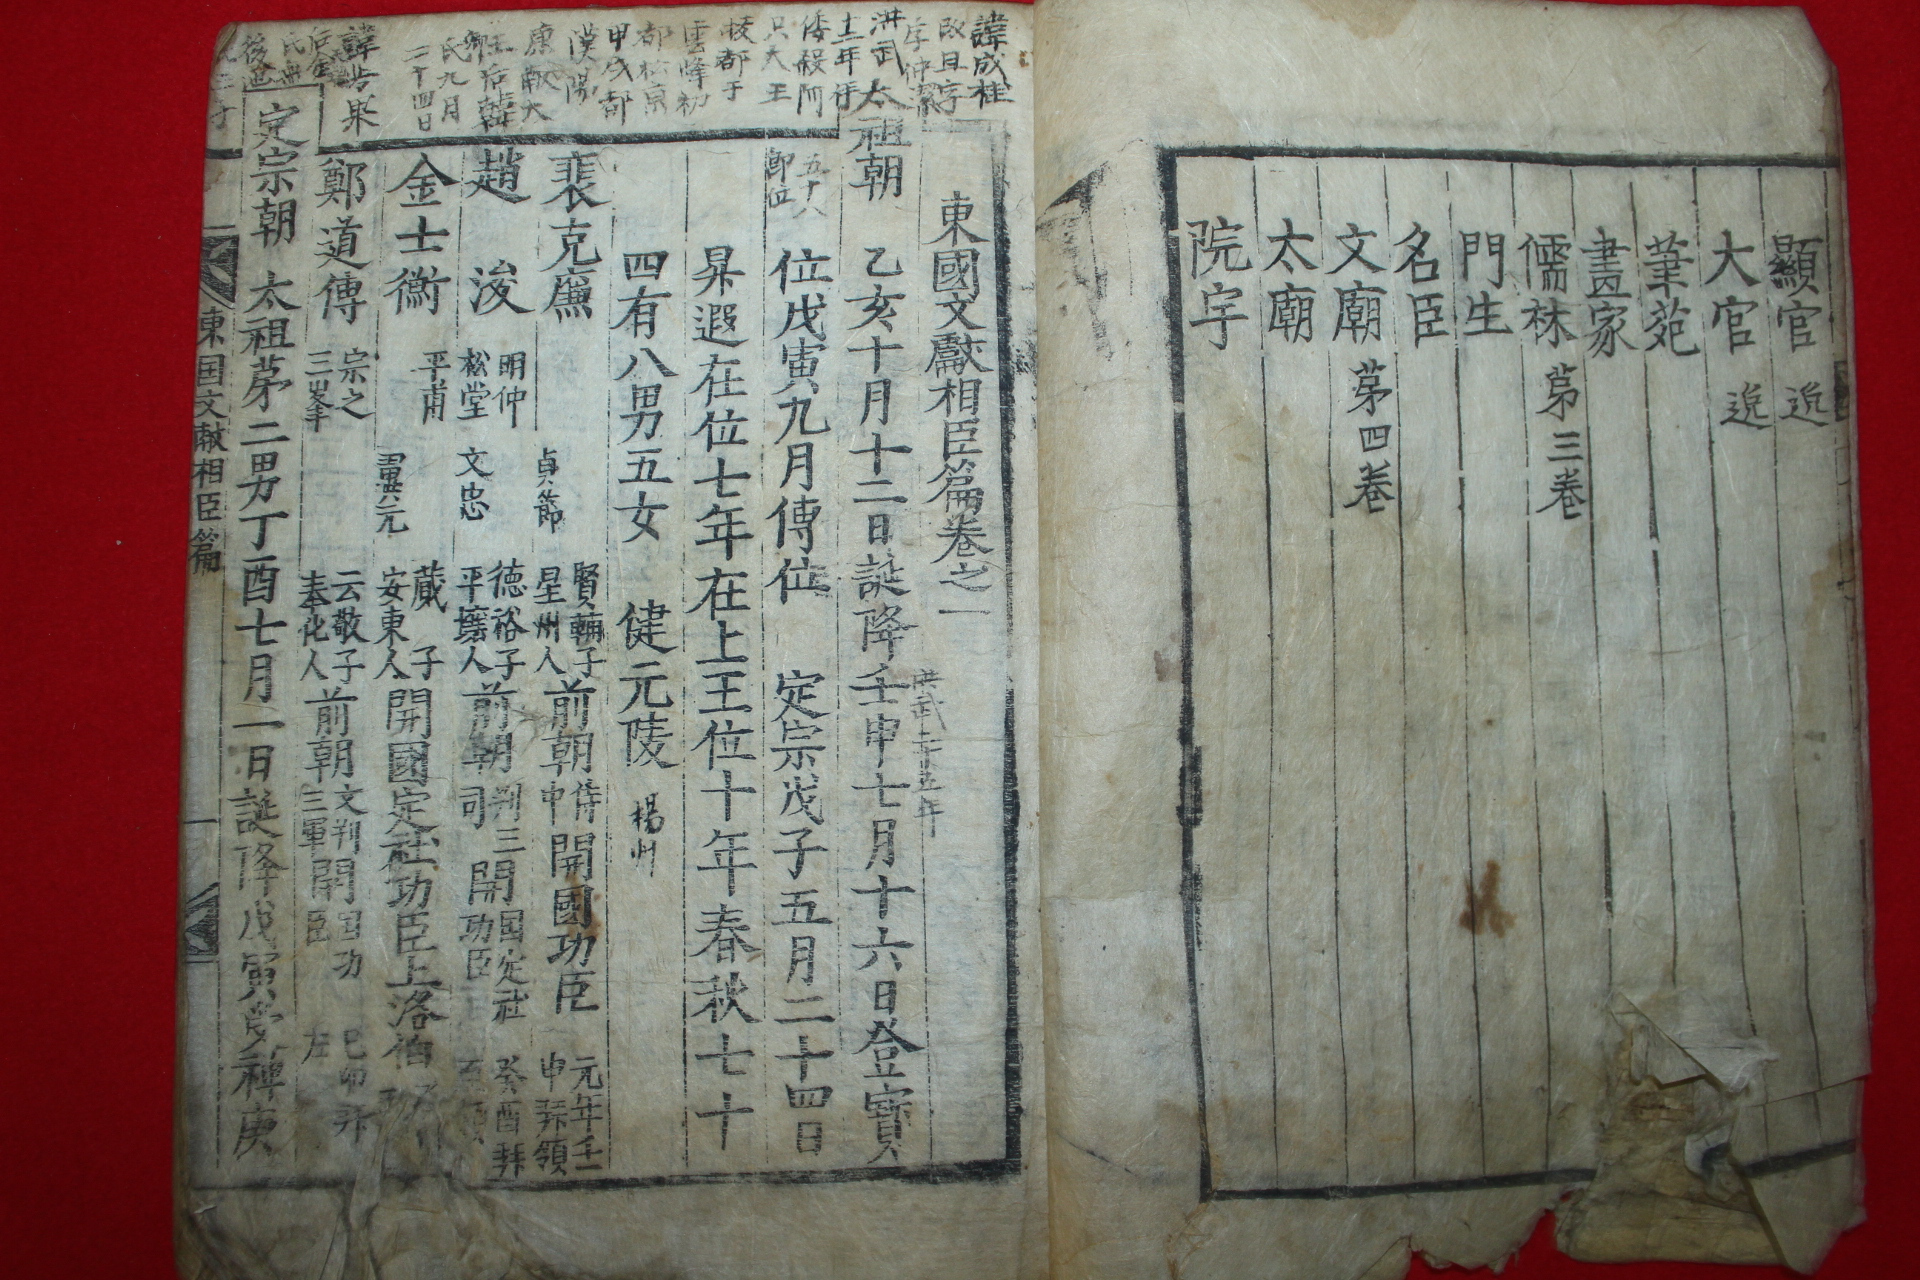 顯官 逆
大官 逆
筆苑
畫家
儒林 第三卷
門生
名臣
文廟 第四卷
太廟
院宇
諱成桂
改旦字
洪武
倭殺阿
只大王
移都于
都松京
甲戌都
漢陽
康獻大
王后韓
氏九月
二十四日
東國文獻相臣篇卷之一
洪武二十五年
太祖朝 乙亥十月十二日誕降壬申七月十六日登寶
五十八
卽位
位戊寅九月傳位 定宗戊子五月二十四日
昇遐在位七年在上王位十年春秋七十
四有八男五女 健元陵 楊州
裴克廉 貞節 賢輔子 星州人 前朝侍中開國功臣 元年壬申拜領
趙浚 明仲 松堂 文忠 德裕子 平壤人 前朝判三司開國定社功臣 癸酉拜
金士衡 平甫 翼元 蕆子 安東人 開國定社功臣上洛伯
鄭道傳 宗之 三峯 云敬子 奉化人 前朝文判三軍開國功臣
定宗朝 太祖第二男丁酉七月一日誕降戊寅受禪庚
東国文献相臣篇